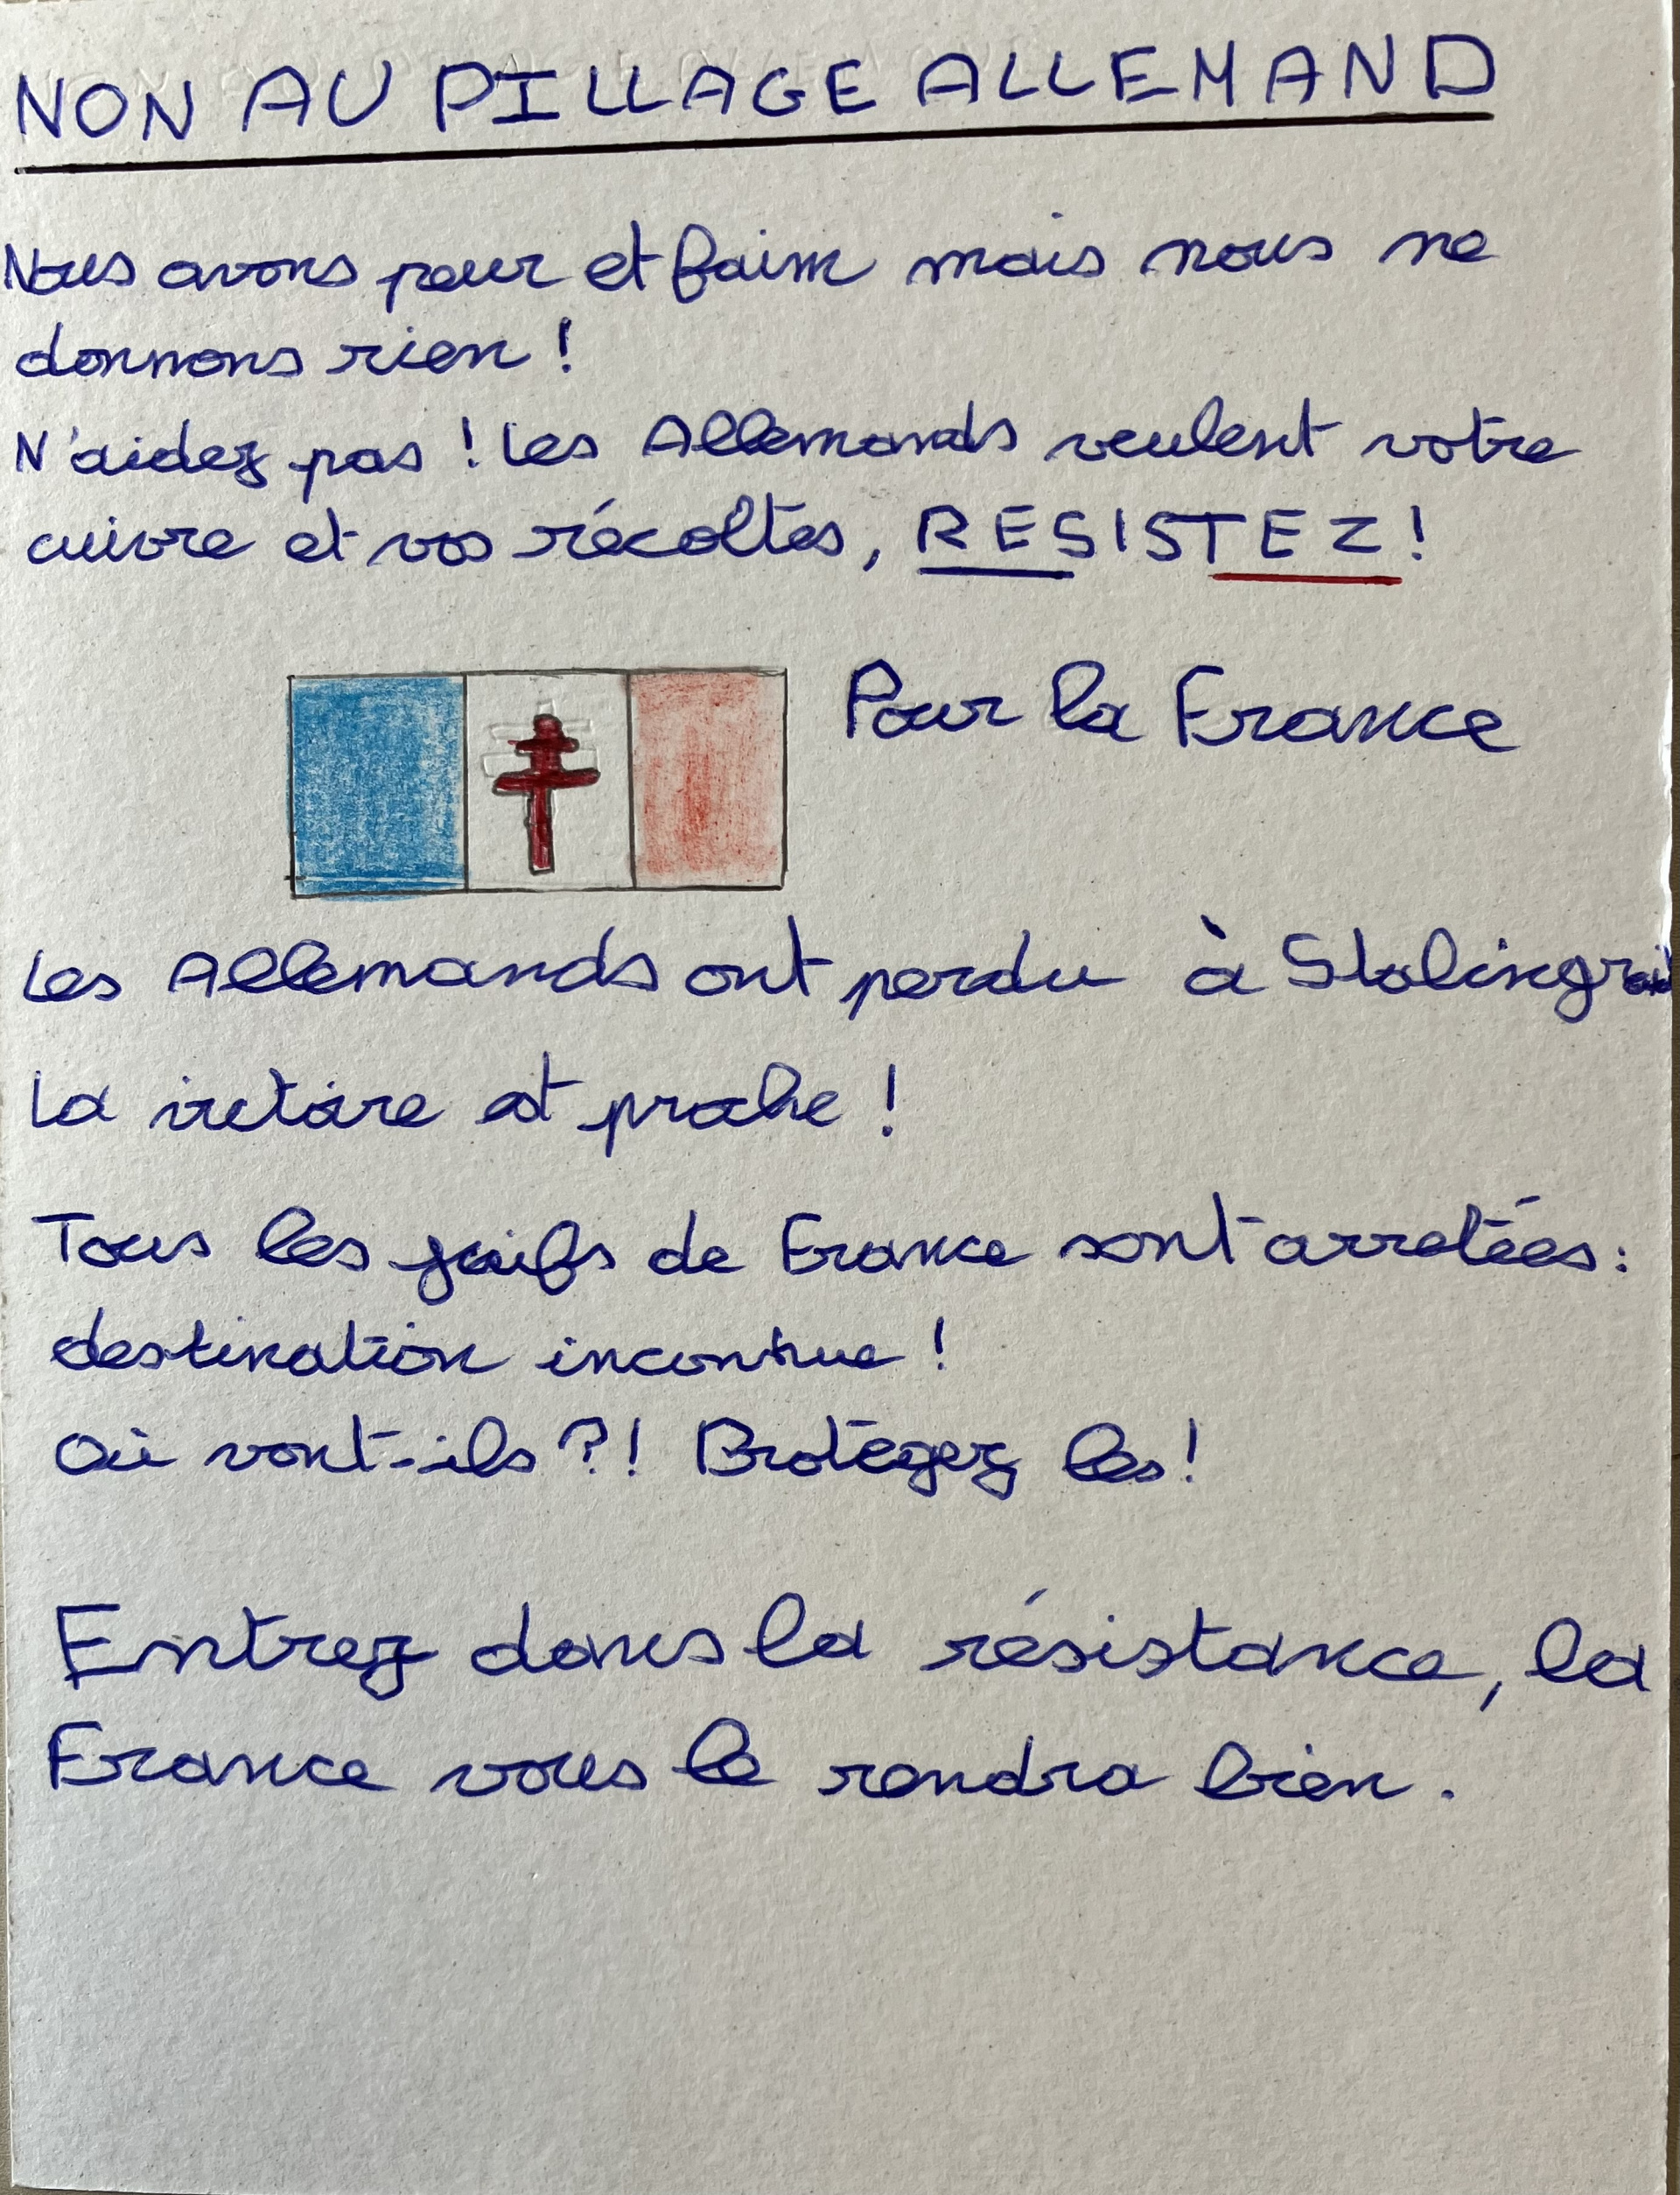 NON AU PILLAGE ALLEMAND
Nous avons peur et faim mais nous ne
donnons rien !
N'aidez pas ! Les Allemands veulent votre
cuivre et vos récoltes, RESISTEZ !
Pour la France
Les Allemands ont perdu à Stalingrad
La victoire est proche !
Tous les juifs de France sont arretées :
destination inconnue !
Où vont-ils ?! Protégez les !
Entrez dans la résistance, la
France vous le rendra bien.